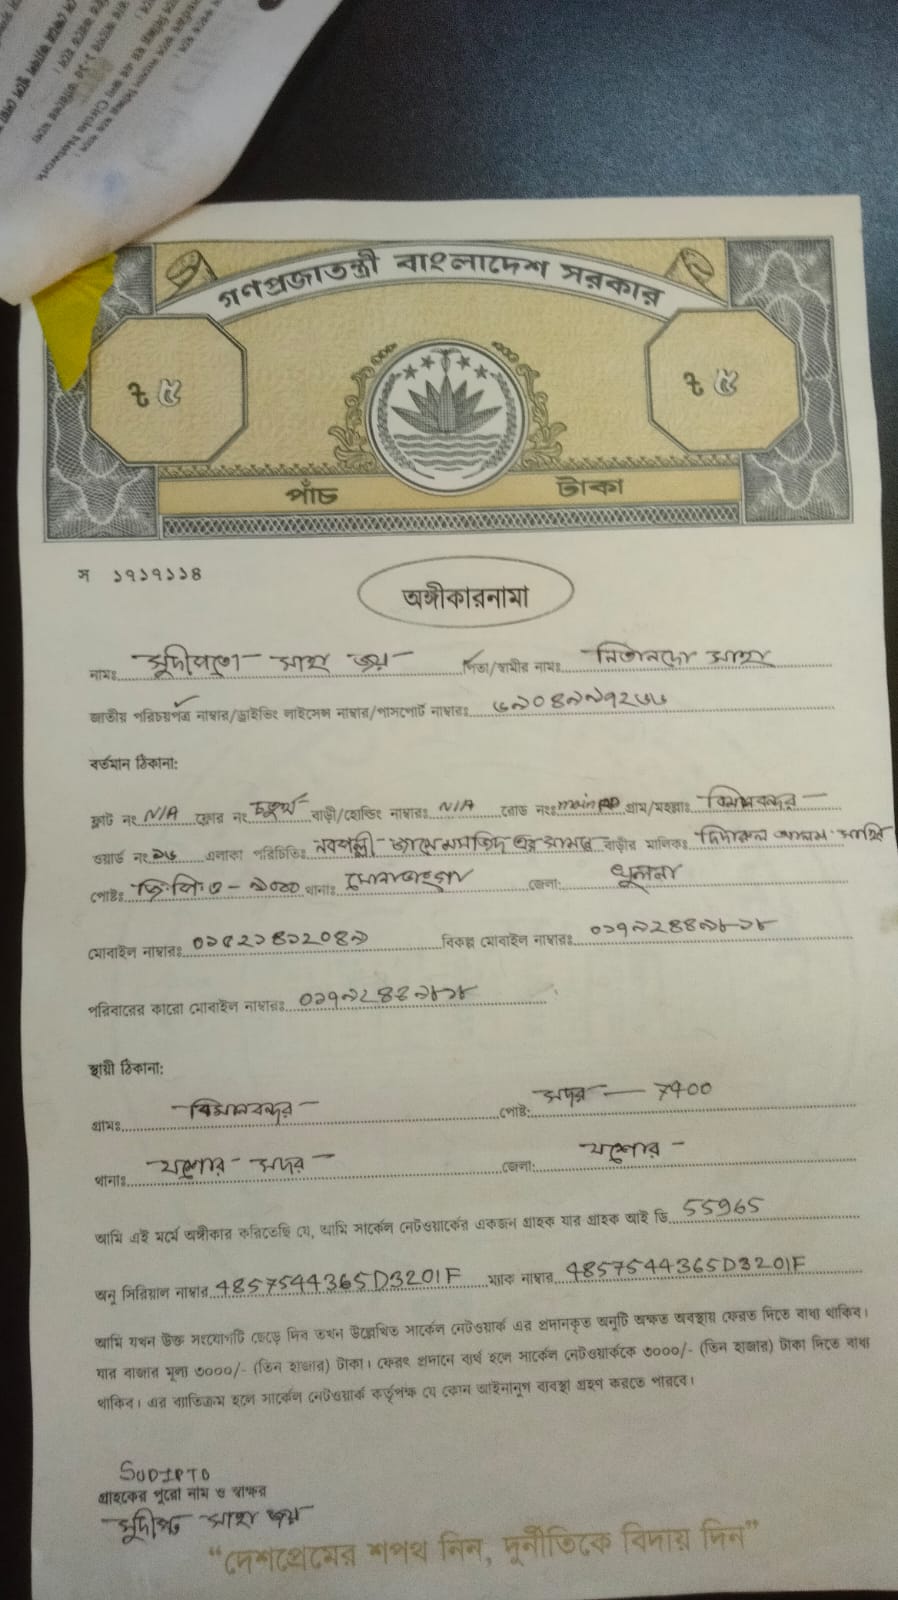 Circle Network
গণপ্রজাতন্ত্রী বাংলাদেশ সরকার
৳ ৫ ৳ ৫
পাঁচ টাকা
স ১৭১৭১১৪
অঙ্গীকারনামা
নামঃ সুদীপ্তো সাহা জয় পিতা/স্বামীর নামঃ নিতানন্দো সাহা
জাতীয় পরিচয়পত্র নাম্বার/ড্রাইভিং লাইসেন্স নাম্বার/পাসপোর্ট নাম্বারঃ ৬৯০৪৯৯৭২৬৬
বর্তমান ঠিকানা:
ফ্লাট নং N/A ফ্লোর নং চতুর্থ বাড়ী/হোল্ডিং নাম্বারঃ N/A রোড নংঃ main গ্রাম/মহল্লাঃ বিমানবন্দর
ওয়ার্ড নং ১৬ এলাকা পরিচিতিঃ নবপল্লী জামে মসজিদ এর সামনে বাড়ীর মালিকঃ দিদারুল আলম
পোষ্টঃ জি.পি.ও - ৯০০০ থানাঃ সোনাডাঙ্গা জেলা: খুলনা
মোবাইল নাম্বারঃ ০১৫২১৪১২০৪৯ বিকল্প মোবাইল নাম্বারঃ ০১৭৯২৪৪৯৮১৮
পরিবারের কারো মোবাইল নাম্বারঃ ০১৭৯২৪৪৯৮১৮
স্থায়ী ঠিকানা:
গ্রামঃ বিমানবন্দর পোষ্ট: সদর — 7400
থানাঃ যশোর সদর জেলা: যশোর
আমি এই মর্মে অঙ্গীকার করিতেছি যে, আমি সার্কেল নেটওয়ার্কের একজন গ্রাহক যার গ্রাহক আই ডি 55965
অনু সিরিয়াল নাম্বার 4857544365D3201F ম্যাক নাম্বার 4857544365D3201F
আমি যখন উক্ত সংযোগটি ছেড়ে দিব তখন উল্লেখিত সার্কেল নেটওয়ার্ক এর প্রদানকৃত অনুটি অক্ষত অবস্থায় ফেরত দিতে বাধ্য থাকিব।
যার বাজার মূল্য ৩০০০/- (তিন হাজার) টাকা। ফেরৎ প্রদানে ব্যর্থ হলে সার্কেল নেটওয়ার্ককে ৩০০০/- (তিন হাজার) টাকা দিতে বাধ্য
থাকিব। এর ব্যতিক্রম হলে সার্কেল নেটওয়ার্ক কর্তৃপক্ষ যে কোন আইনানুগ ব্যবস্থা গ্রহণ করতে পারবে।
SUDIPTO
গ্রাহকের পুরো নাম ও স্বাক্ষর
সুদীপ্ত সাহা জয়
“দেশপ্রেমের শপথ নিন, দুর্নীতিকে বিদায় দিন”